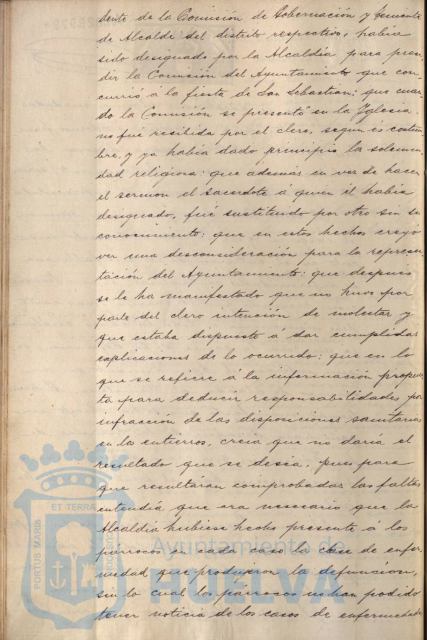 dente de la Comisión de Gobernación y Teniente
de Alcalde del distrito respectivo, había
sido designado por la Alcaldía para presi-
dir la Comisión del Ayuntamiento que con-
currió á la fiesta de San Sebastian: que cuan-
do la Comisión se presentó en la Iglesia
no fué recibida por el clero, segun es costum-
bre, y ya había dado principio la solemni-
dad religiosa: que además en vez de hacer
el sermon el sacerdote á quien él había
designado, fué sustituido por otro sin su
conocimiento: que en estos hechos creyó
ver una desconsideración para la represen-
tación del Ayuntamiento: que despues
se le ha manifestado que no hubo por
parte del clero intención de molestar y
que estaba dispuesto á dar cumplidas
explicaciones de lo ocurrido: que en lo
que se refiere á la información propues-
ta para deducir responsabilidades por
infracción de las disposiciones sanitarias
en los entierros, creia que no daría el
resultado que se desea, pues para
que resultáran comprobadas las faltas
entendía que era necesario que la
Alcaldía hubiese hecho presente á los
párrocos en cada caso la clase de enfer-
medad que produjera la defuncion,
sin lo cual los párrocos no han podido
tener noticia de los casos de enfermedades
PORTUS MARIS
ET TERRAE
Ayuntamiento de
HUELVA